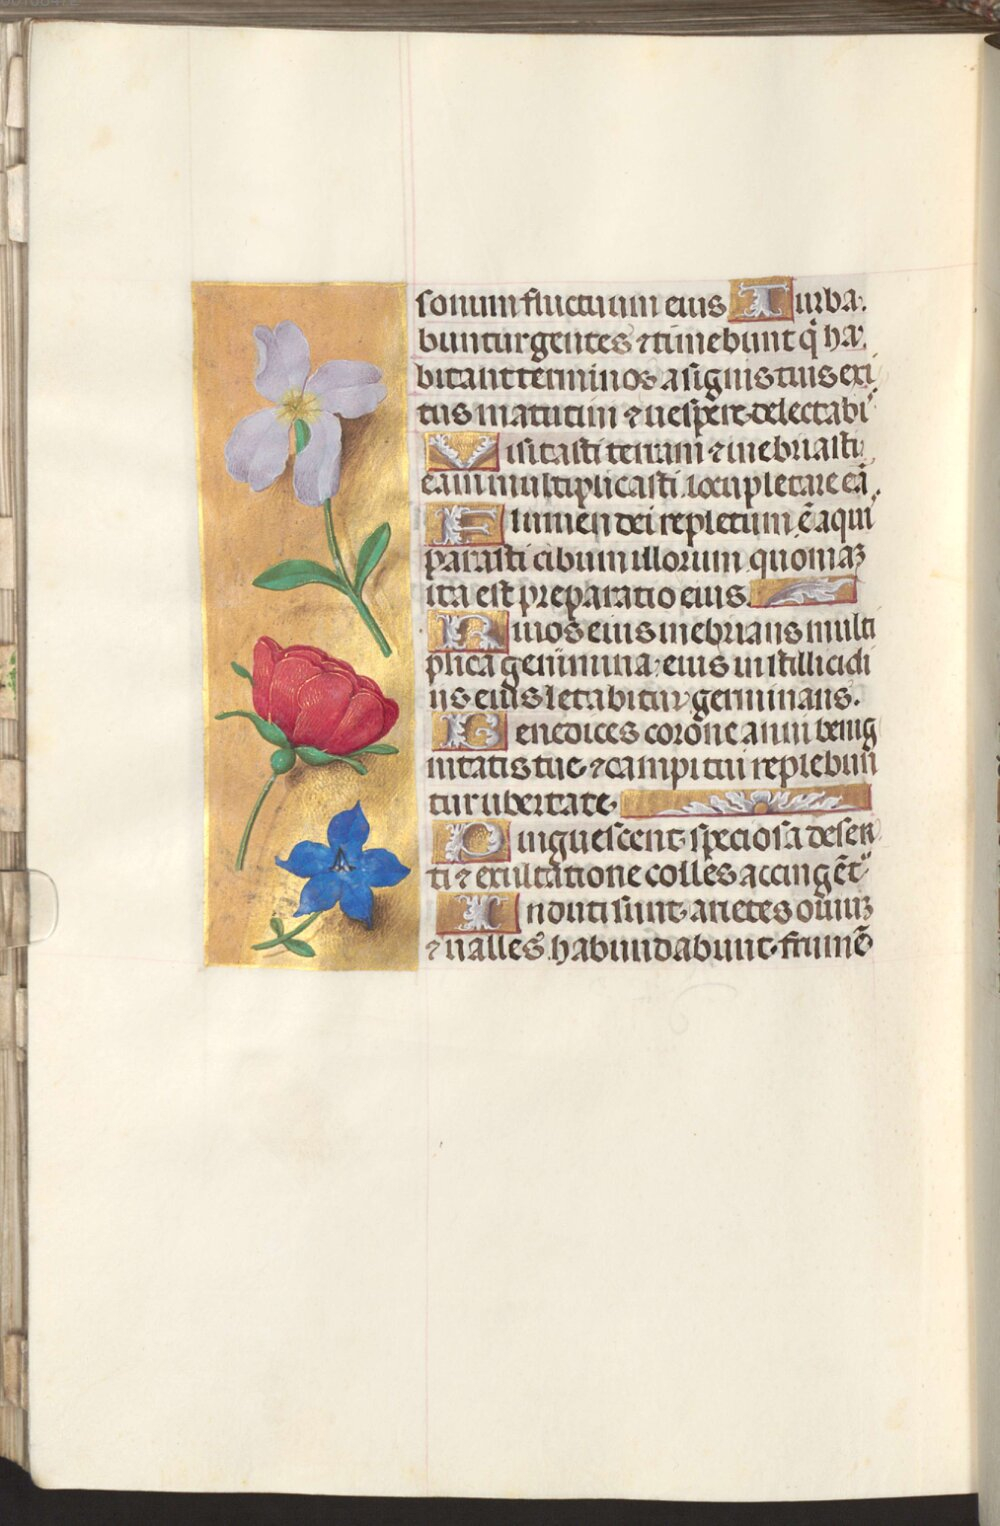 sonum fluctuum eius Turba
buntur gentes ⁊ timebunt q̇ ha
bitant terminos a signis tuis exi
tus matutini ⁊ uespere delectabi
Uisitasti terram ⁊ inebriasti
eam multiplicasti locupletare eā
Flumen dei repletum ē aqui
parasti cibum illorum quoniaꝫ
ita est preparatio eius
Riuos eius inebrians multi
plica genimina eius in stillicidi
iis eius letabitur germinans.
Benedices corone anni benig
nitatis tue ⁊ campi tui replebun
tur ubertate
Pinguescent speciosa deser
ti ⁊ exultatione colles accingēt
Induti sunt arietes ouiuꝫ
⁊ ualles habundabunt frumē